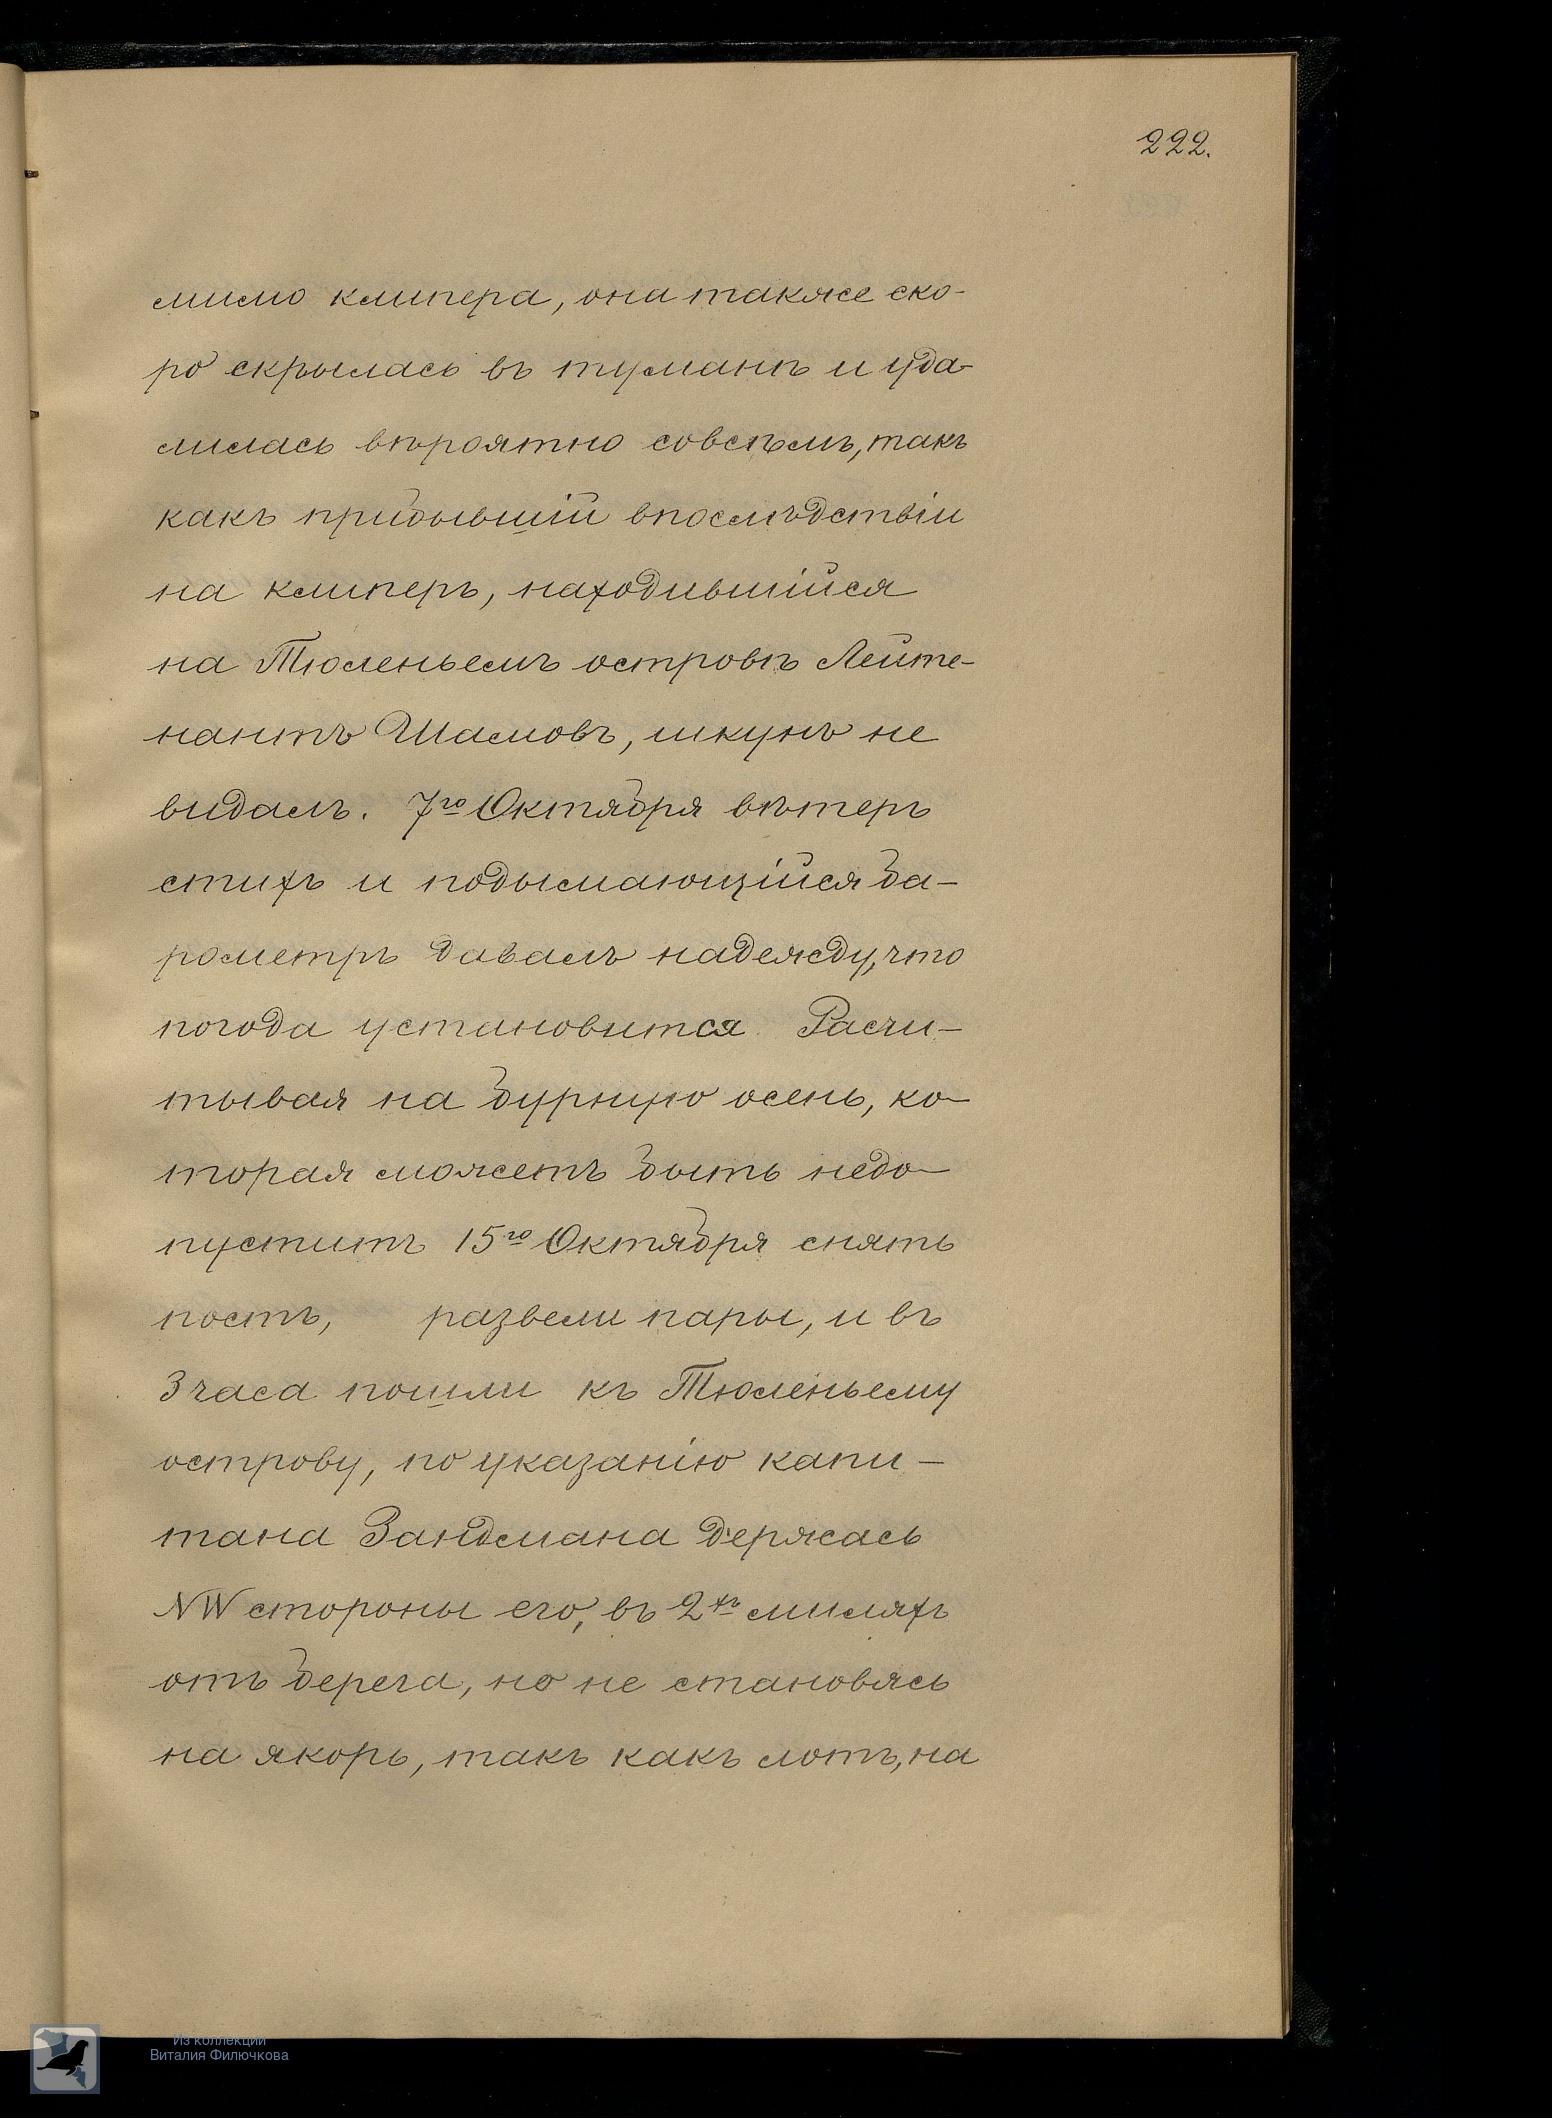 222.
мимо клипера, она также ско-
ро скрылась въ туманѣ и уда-
лилась вѣроятно совсѣмъ, такъ
какъ прибывшій впослѣдствіи
на клиперъ, находившійся
на Тюленьемъ островѣ Лейте-
нантъ Шамовъ, шкунъ не
видалъ. 7го Октября вѣтеръ
стихъ и подымающійся ба-
рометръ давалъ надежду, что
погода установится. Расчи-
тывая на бурную осень, ко-
торая можетъ быть недо-
пуститъ 15го Октября снять
постъ, развели пары, и въ
3 часа пошли къ Тюленьему
острову, по указанію капи-
тана Зандмана держась
NW стороны его, въ 2хъ миляхъ
отъ берега, но не становясь
на якорь, такъ какъ лотъ, на
Из коллекции
Виталия Филючкова